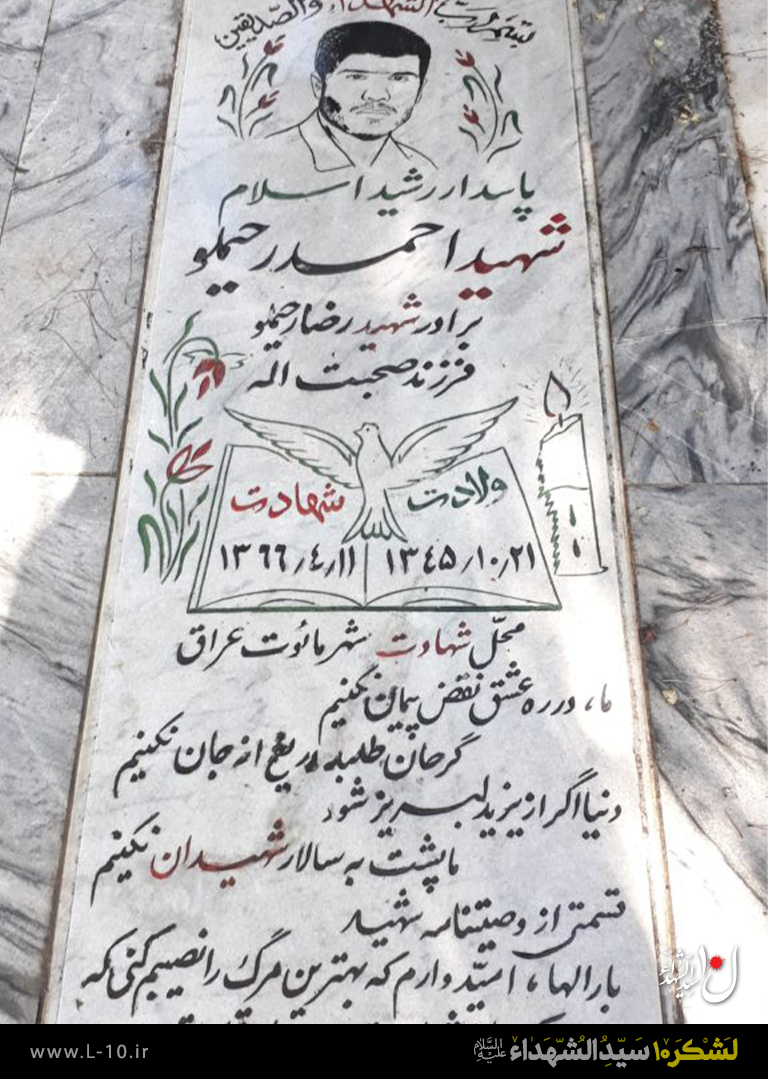 بسم رب الشهداء والصدیقین
پاسدار رشید اسلام
شهید احمد رحیملو
برادر شهید رضا رحیملو
فرزند صحبت اله
ولادت
شهادت
۱۳۴۵/۱۰/۲۱
۱۳۶۶/۴/۱۱
محلّ شهادت شهر مائوت عراق
ما، در ره عشق نقض پیمان نکنیم
گر جان طلبد دریغ از جان نکنیم
دنیا اگر از یزید لبریز شود
ما پشت به سالار شهیدان نکنیم
قسمتی از وصیتنامه شهید
بارالها، امیّدوارم که بهترین مرگ را نصیبم کنی که
www.L-10.ir
لَشْکَر۱۰ سَیّدُالشّهَداء علیه السّلام